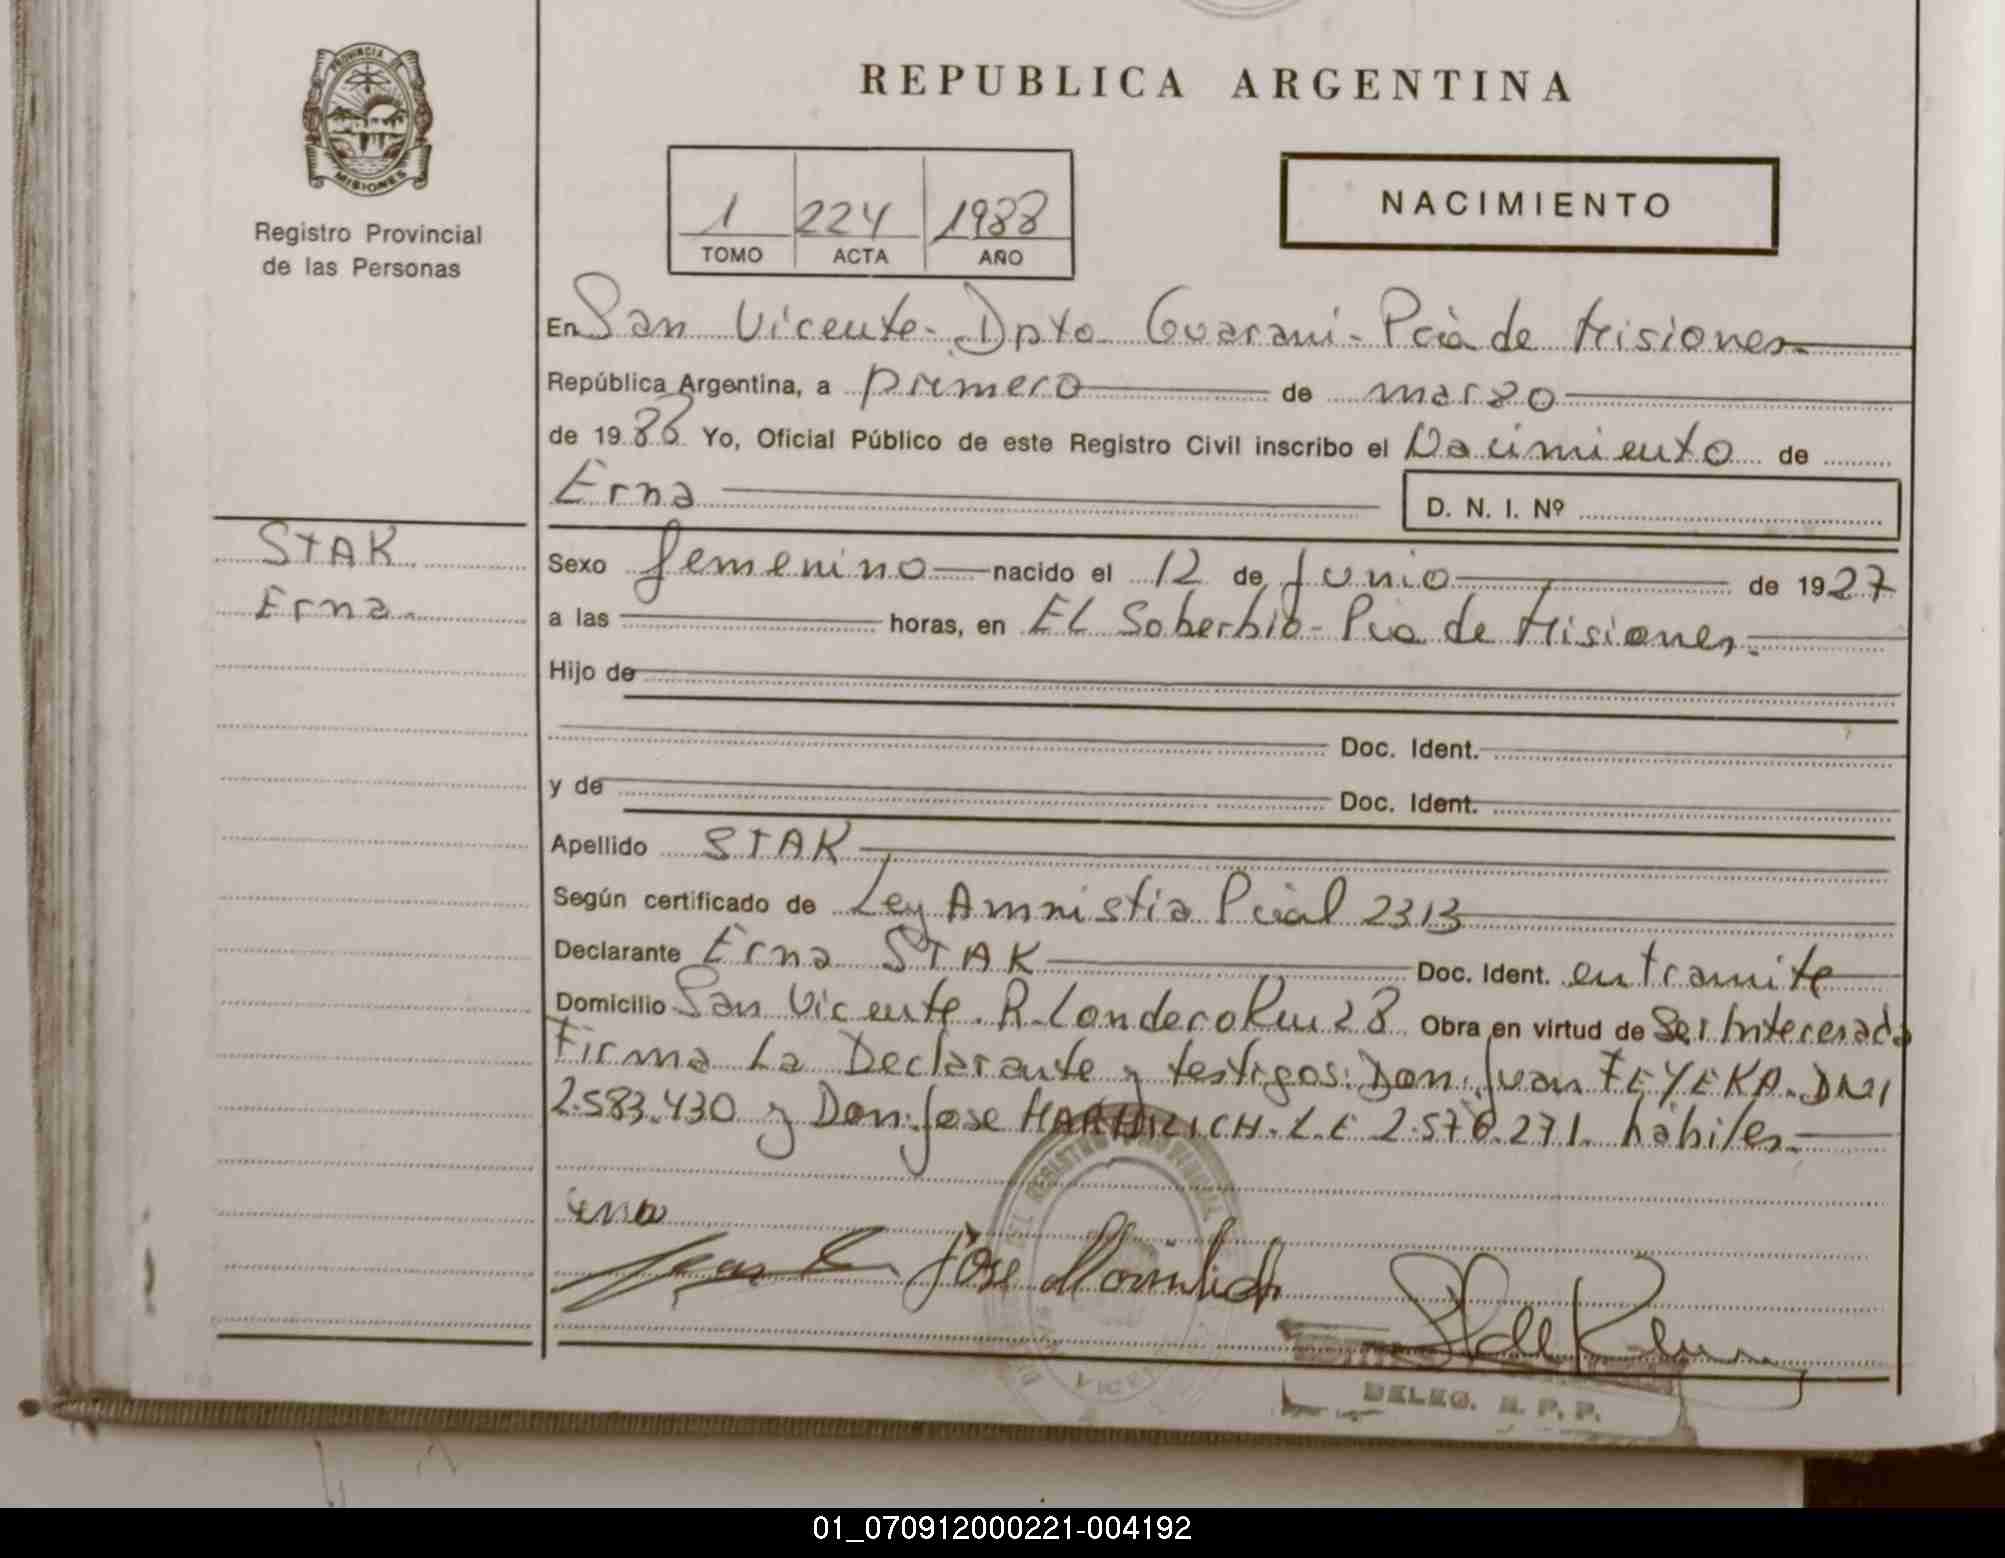 PROVINCIA DE
MISIONES
Registro Provincial
de las Personas
STAK
Erna.
REPUBLICA ARGENTINA
1 224 1988
TOMO ACTA AÑO
NACIMIENTO
En San Vicente- Dpto Guarani- Pcia de Misiones.
República Argentina, a primero de marzo
de 1988 Yo, Oficial Público de este Registro Civil inscribo el Nacimiento de
Erna
D. N. I. Nº
Sexo femenino nacido el 12 de Junio de 1927
a las horas, en EL Soberbio- Pcia de Misiones.
Hijo de
Doc. Ident.
y de Doc. Ident.
Apellido STAK
Según certificado de Ley Amnistia Pcial 2313
Declarante Erna STAK Doc. Ident. en tramite
Domicilio San Vicente. R. Londero Km 28 Obra en virtud de Ser Interesada
Firma La Declarante y testigos: Don: Juan FEYEKA. DNI
2.583.430 y Don: Jose L.E 2.576.271. hábiles.
Jose
DELEG. R. P. P.
01_070912000221-004192